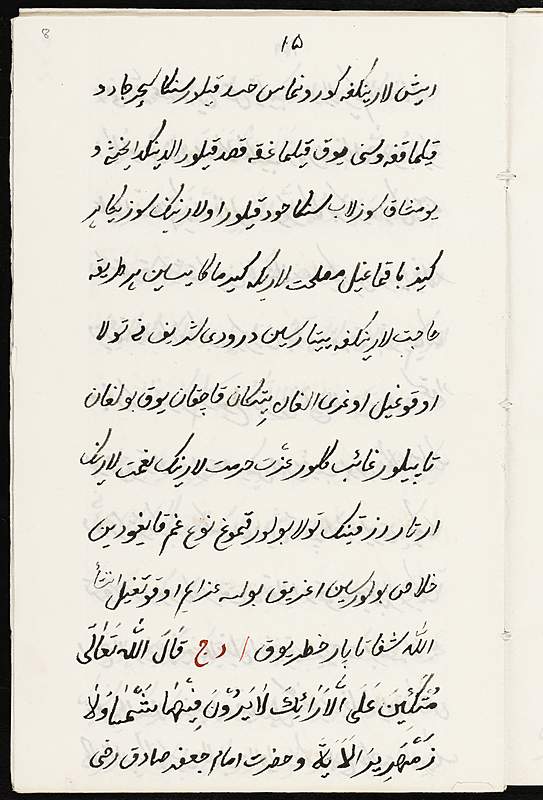 ۱۵
8
ایش لارینکغه کورونماس حسد قیلور سنکا سحر جادو
قیلماققه و سنی یوق قیلماغقه قصد قیلور الدینکدا یخشی و
یومشاق سوزلاب سنکا حود قیلور اولارنینک سوزیکا هر
کیز باقماغیل مصلحت لاریکه کیرماکایسین هر طریقه
حاجت لارینکغه ییتارسین درودی شریف نی تولا
اوقوغیل اوغری الغان یتکان قاچقان یوق بولغان
تاپیلور غائب کلور عزّت حرمت لارینک نعمت لارینک
ارتار رزقینک تولا بولور قموغ نوع غم قایغودین
خلاص بولورسین اغریق بولسه عزایم اوقوتغیل انشأ
اللّٰه شفا تاپار خطر یوق / د ج قَالَ اللّٰه تَعَالٰی
مُتَّکِئِینَ عَلَی الْاَرَائِكَ لَایَرَوْنَ فِیْهَا شَمْسًا وَلَا
زَمْهَرِیرَ الْاَیَة و حضرت امام جعفر صادق رضی